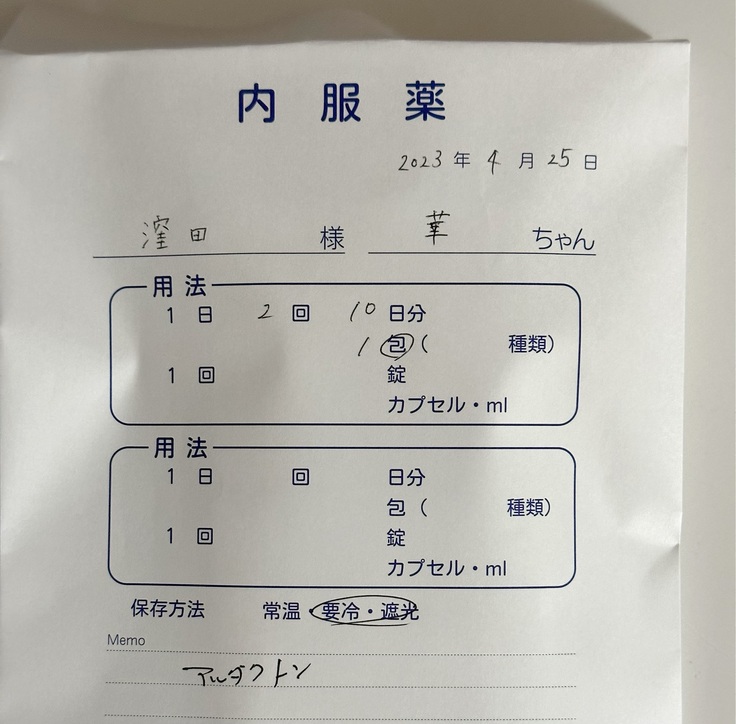 内服薬
2023年 4月 25日
窪田 様 華 ちゃん
用法
1日 2回 10日分
1包( 種類)
1回 錠
カプセル・ml
用法
1日 回 日分
包( 種類)
1回 錠
カプセル・ml
保存方法 常温・要冷・遮光
Memo
アルダクトン